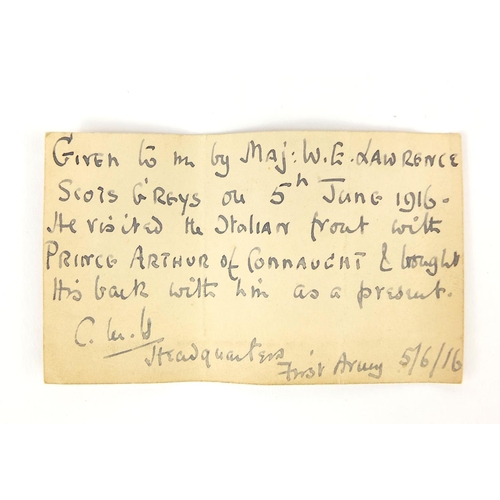 Given to me by Maj: W. E. Lawrence
Scots Greys on 5th June 1916.
He visited the Italian front with
Prince Arthur of Connaught & brought
this back with him as a present.
Headquarters
First Army 5/6/16